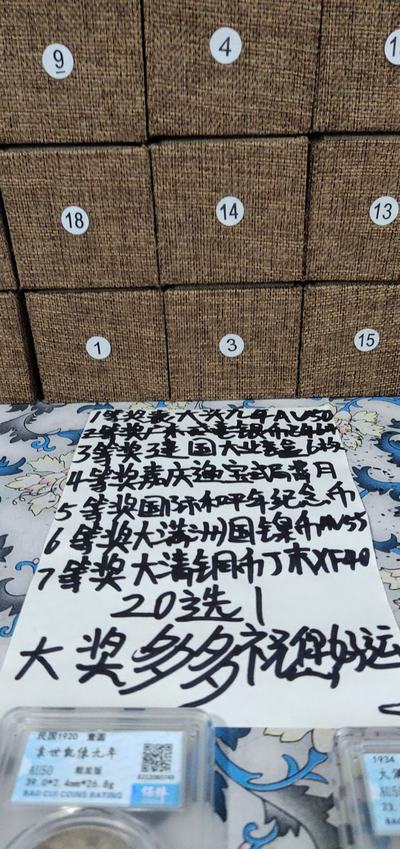 9
4
18
14
13
1
3
15
1等奖袁大头九年AU50
2等奖广
3等奖建国大业
4等奖嘉庆通宝
5等奖国际和平年纪念币
6等奖大满洲国镍币AU55
7等奖大清铜币丁未XF40
20选1
大奖多多祝您好运
民国1920 壹圆
袁世凯像九年
AU50
39.0*2.4mm*26.8g
BAO CUI COINS RATING
1934